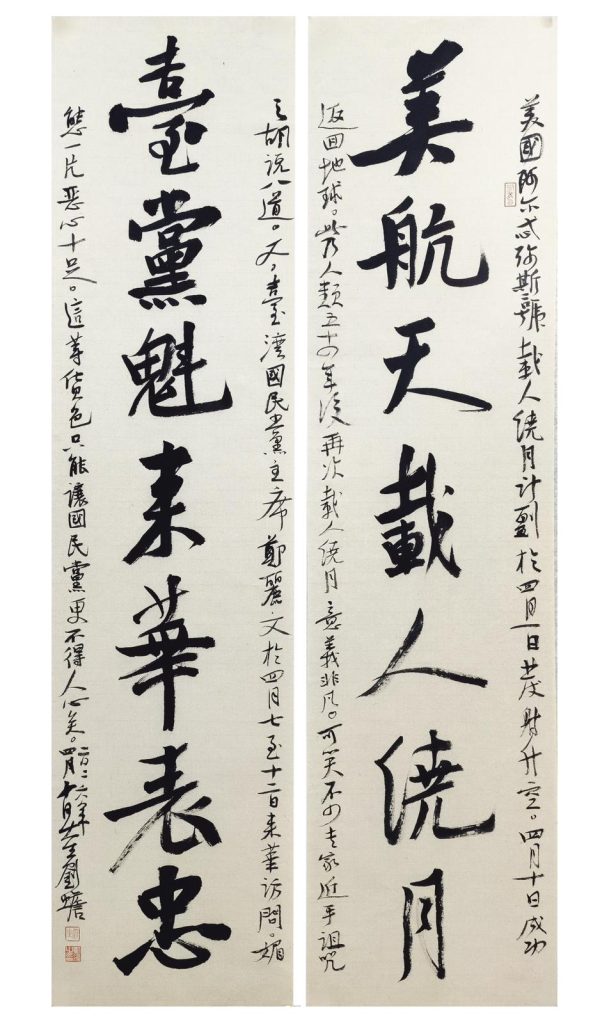 美國阿尔忒弥斯號載人繞月計劃於四月一日發射升空。四月十日成功
美航天載人繞月
返回地球。此乃人類五十四年後再次載人繞月意義非凡。可笑不少专家近乎詛咒
之胡说八道。又，臺湾國民黨主席鄭麗文於四月七至十二日来華訪問。媚
臺黨魁来華表忠
態一片恶心十足。這等货色只能讓國民黨更不得人心矣。
二〇二六年
四月十 劉